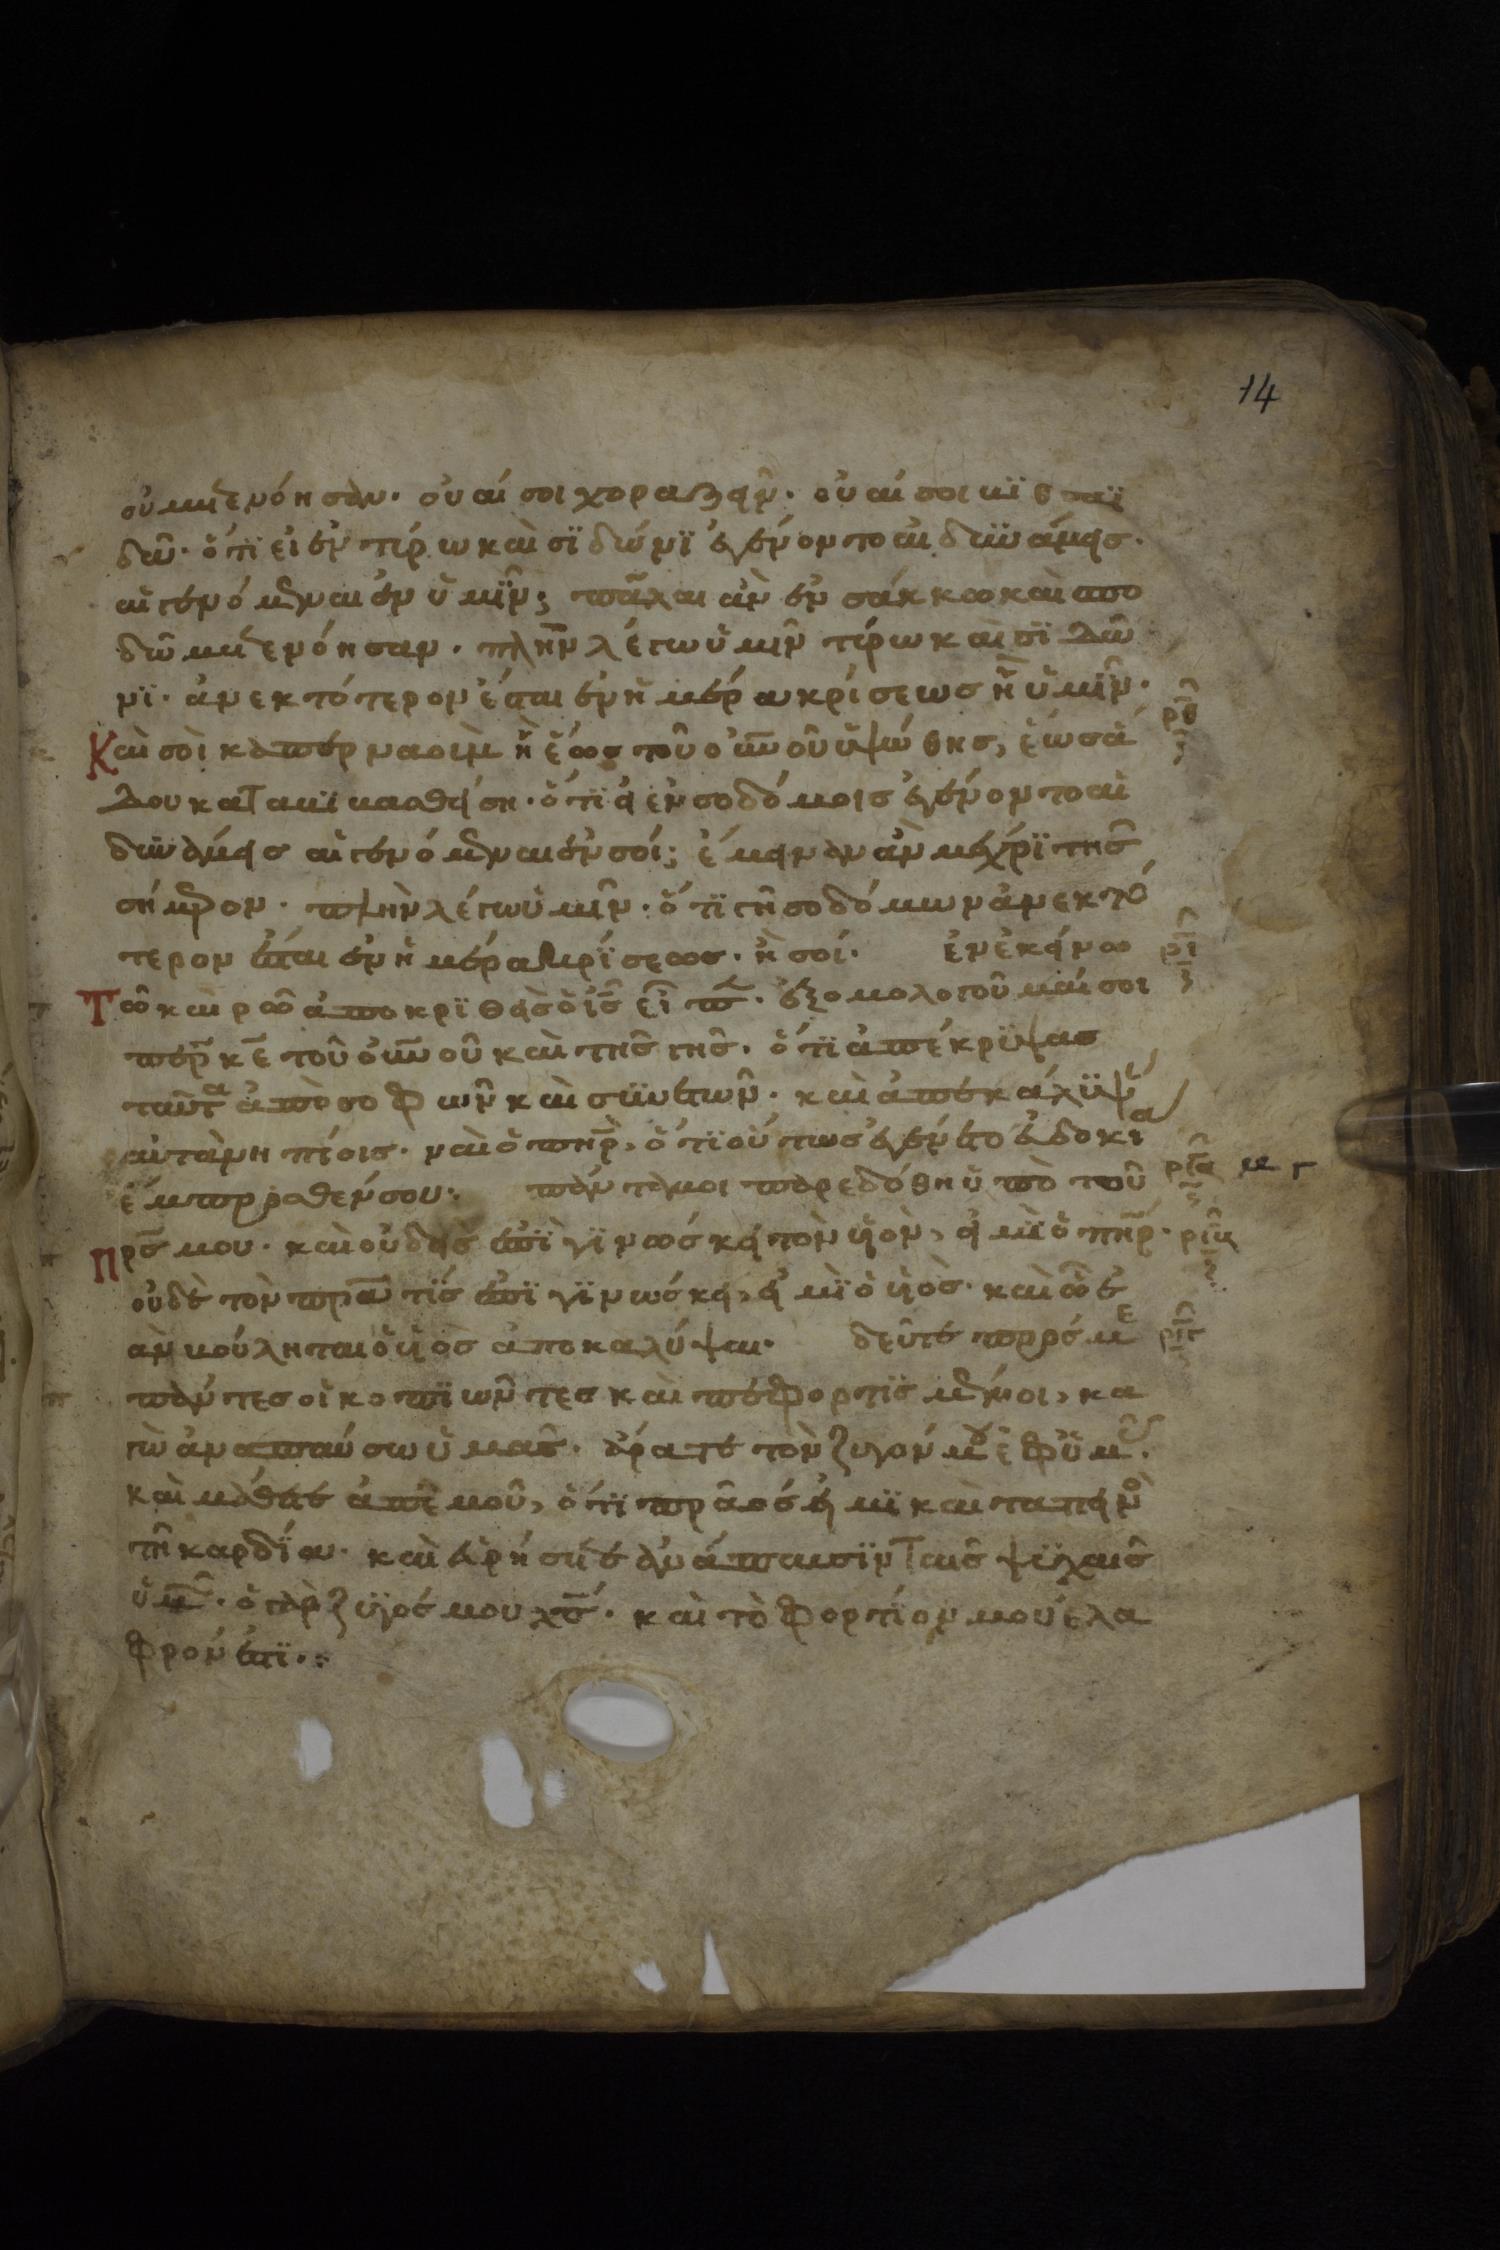 14
οὐ μετενόησαν· οὐαί σοι χοραζείν· οὐαί σοι βιθσαϊ
δᾶν· ὅτι εἰ ἐν τύρω καὶ σιδώνι ἐγένοντο αἱ δυνάμεις·
αἱ γενόμεναι ἐν ὑμῖν; πάλαι ἂν ἐν σάκκω καὶ σπο
δῶ μετενόησαν· πλὴν λέγω ὑμῖν τύρω καὶ σιδῶ
νι· ἀνεκτότερον ἔσται ἐν ἡμέρα κρίσεως ἢ ὑμῖν·
Καὶ σὺ καπερναοὺμ ἢ ἕως τοῦ οὐνοῦ ὑψώθης, ἕως ἅ
δου καταβιβασθήση· ὅτι εἰ ἐν σοδόμοις ἐγένοντο αἱ
δυνάμεις αἱ γενόμεναι ἐν σοί; ἔμειναν ἂν μέχρι τῆς
σήμερον· πλὴν λέγω ὑμῖν· ὅτι γῆ σοδόμων ἀνεκτό
τερον ἔσται ἐν ἡμέρα κρίσεως· ἢ σοί· ἐν ἐκείνω
Τῶ καιρῶ ἀποκριθεὶς ὁ ἰς εἶπεν· ἐξομολογοῦμαί σοι
περ κε τοῦ οὐνοῦ καὶ τῆς γῆς· ὅτι ἀπέκρυψας
ταῦτα ἀπὸ σοφῶν καὶ συνετῶν· καὶ ἀπεκάλυψας
αὐτὰ νηπίοις· ναὶ ὁ πηρ, ὅτι οὕτως ἐγένετο εὐδοκία
ἔμπροσθέν σου· πάντα μοι παρεδόθη ὑπὸ τοῦ
Πρς μου· καὶ οὐδεὶς ἐπιγινώσκει τὸν υἱὸν, εἰ μὴ ὁ πηρ·
οὐδὲ τὸν πρα τὶς ἐπιγινώσκει, εἰ μὴ ὁ υἱὸς· καὶ ὧ ἐ
ὰν βούληται ὁ υἱὸς ἀποκαλύψαι· δεῦτε πρός με
πάντες οἱ κοπιῶντες καὶ πεφορτισμένοι, κα
γὼ ἀναπαύσω ὑμᾶς· ἄρατε τὸν ζυγόν μου ἐφ ὑμᾶς·
καὶ μάθετε ἀπ' ἐμοῦ, ὅτι πρᾶος εἰμὶ καὶ ταπεινὸς
τῆ καρδία· καὶ εὑρήσετε ἀνάπαυσιν ταῖς ψυχαῖς
ὑμῶν· ὁ γὰρ ζυγός μου χς· καὶ τὸ φορτίον μου ἐλα
φρόν ἐστι·